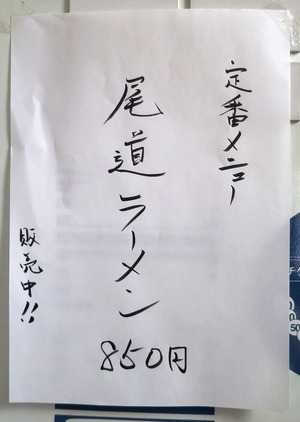 定番メニュー
尾道ラーメン
850円
販売中!!